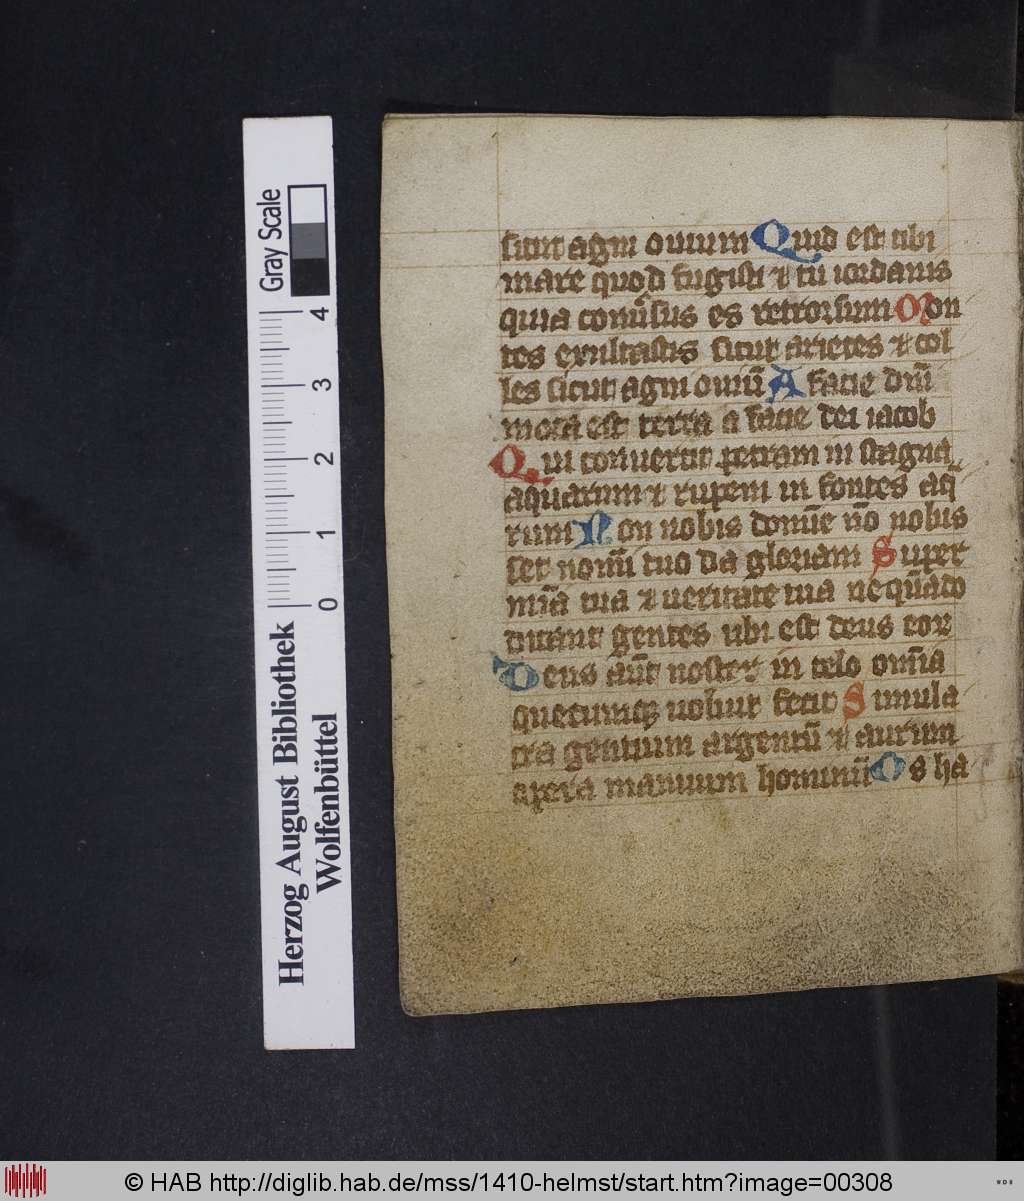 sicut agni ouium Quid est tibi
mare quod fugisti ⁊ tu iordanis
quia conũsus es retrorsum Mon
tes exultastis sicut arietes ⁊ col
les sicut agni ouiũ A facie dñi
mota est terra a facie dei iacob
Qui conuertit petram in stagna
aquarum ⁊ rupem in fontes aq̃
rum Non nobis domĩe nõ nobis
set nomĩ tuo da gloriam Super
mĩa tua ⁊ ueritate tua nequãdo
dicant gentes ubi est deus eor
Deus aũt noster in celo om̃ia
quecumqꝫ uoluit fecit Simula
cra gentium argentũ ⁊ aurum
opera manuum hominũ Os ha
Gray Scale
4
3
2
1
0
Herzog August Bibliothek
Wolfenbüttel
© HAB http://diglib.hab.de/mss/1410-helmst/start.htm?image=00308